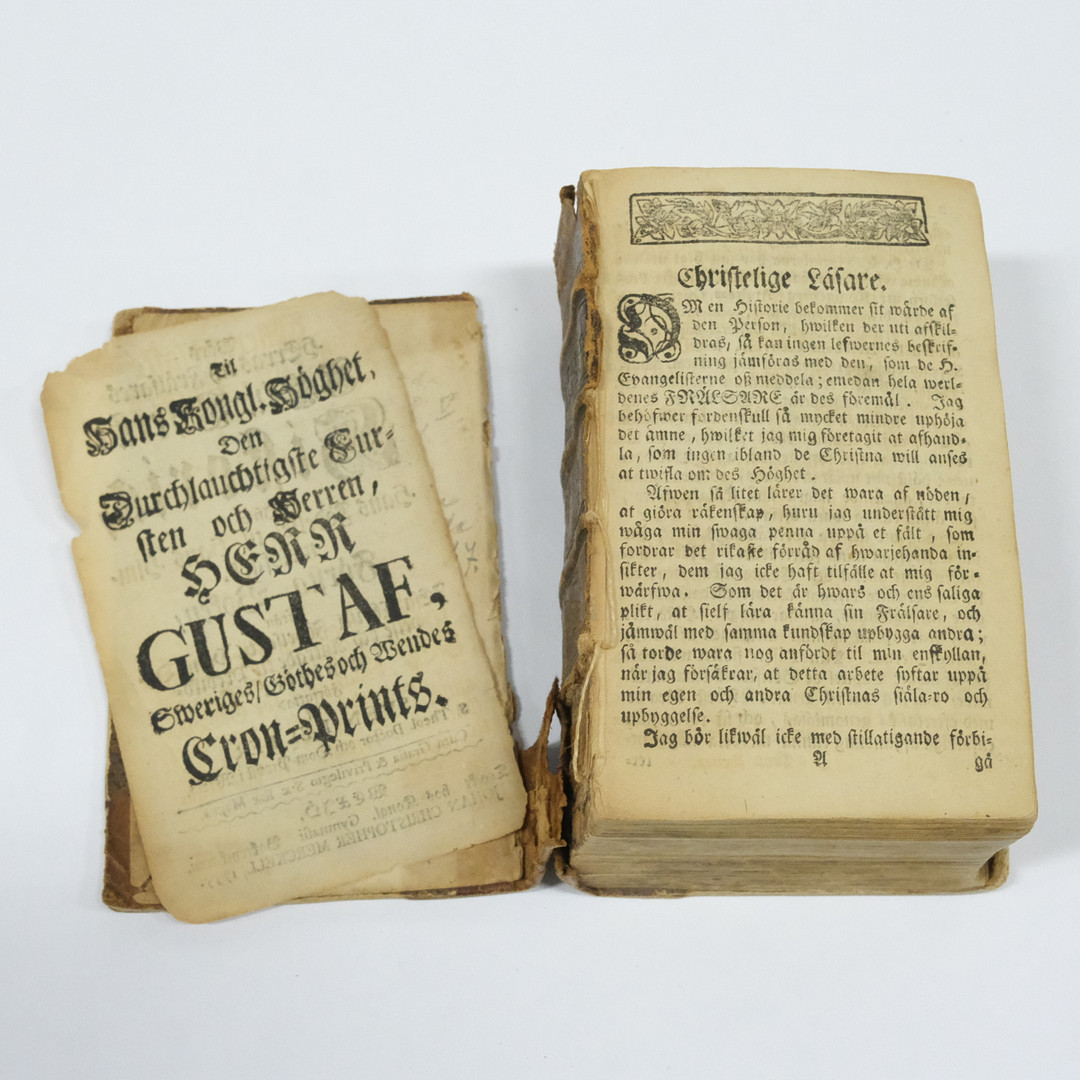 Til
Hans Kongl. Höghet,
Den
Durchlauchtigste Fur-
sten och Herren,
HERR
GUSTAF,
Sweriges/Göthes och Wendes
Cron=Prints.
Christelige Läsare.
OM en Historie bekommer sit wärde af
den Person, hwilken der uti afskil-
dras, så kan ingen lefwernes beskrif-
ning jämföras med den, som de H.
Evangelisterne oß meddela; emedan hela werl-
denes FRÄLSARE är des föremål. Jag
behöfwer fordenskull så mycket mindre uphöja
det ämne, hwilket jag mig företagit at afhand-
la, som ingen ibland de Christna will anses
at twifla om des Höghet.
Äfwen så litet lärer det wara af nöden,
at giöra räkenskap, huru jag understått mig
wåga min swaga penna uppå et fält, som
fordrar det rikaste förråd af hwarjehanda in-
sikter, dem jag icke haft tilfälle at mig för-
wärfwa. Som det är hwars och ens saliga
plikt, at sielf lära känna sin Frälsare, och
jämwäl med samma kundskap upbygga andra;
så torde wara nog anfördt til min enskyllan,
när jag försäkrar, at detta arbete syftar uppå
min egen och andra Christnas siäla-ro och
upbyggelse.
Jag bör likwäl icke med stillatigande förbi-
A gå